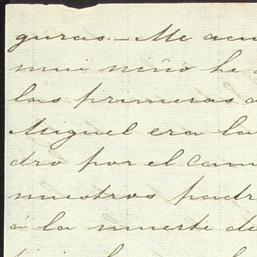 guras.— Me acu
mui niño he
las primeras
Miguel era la
dro por el Cam
nuestros padr
á la muerte de